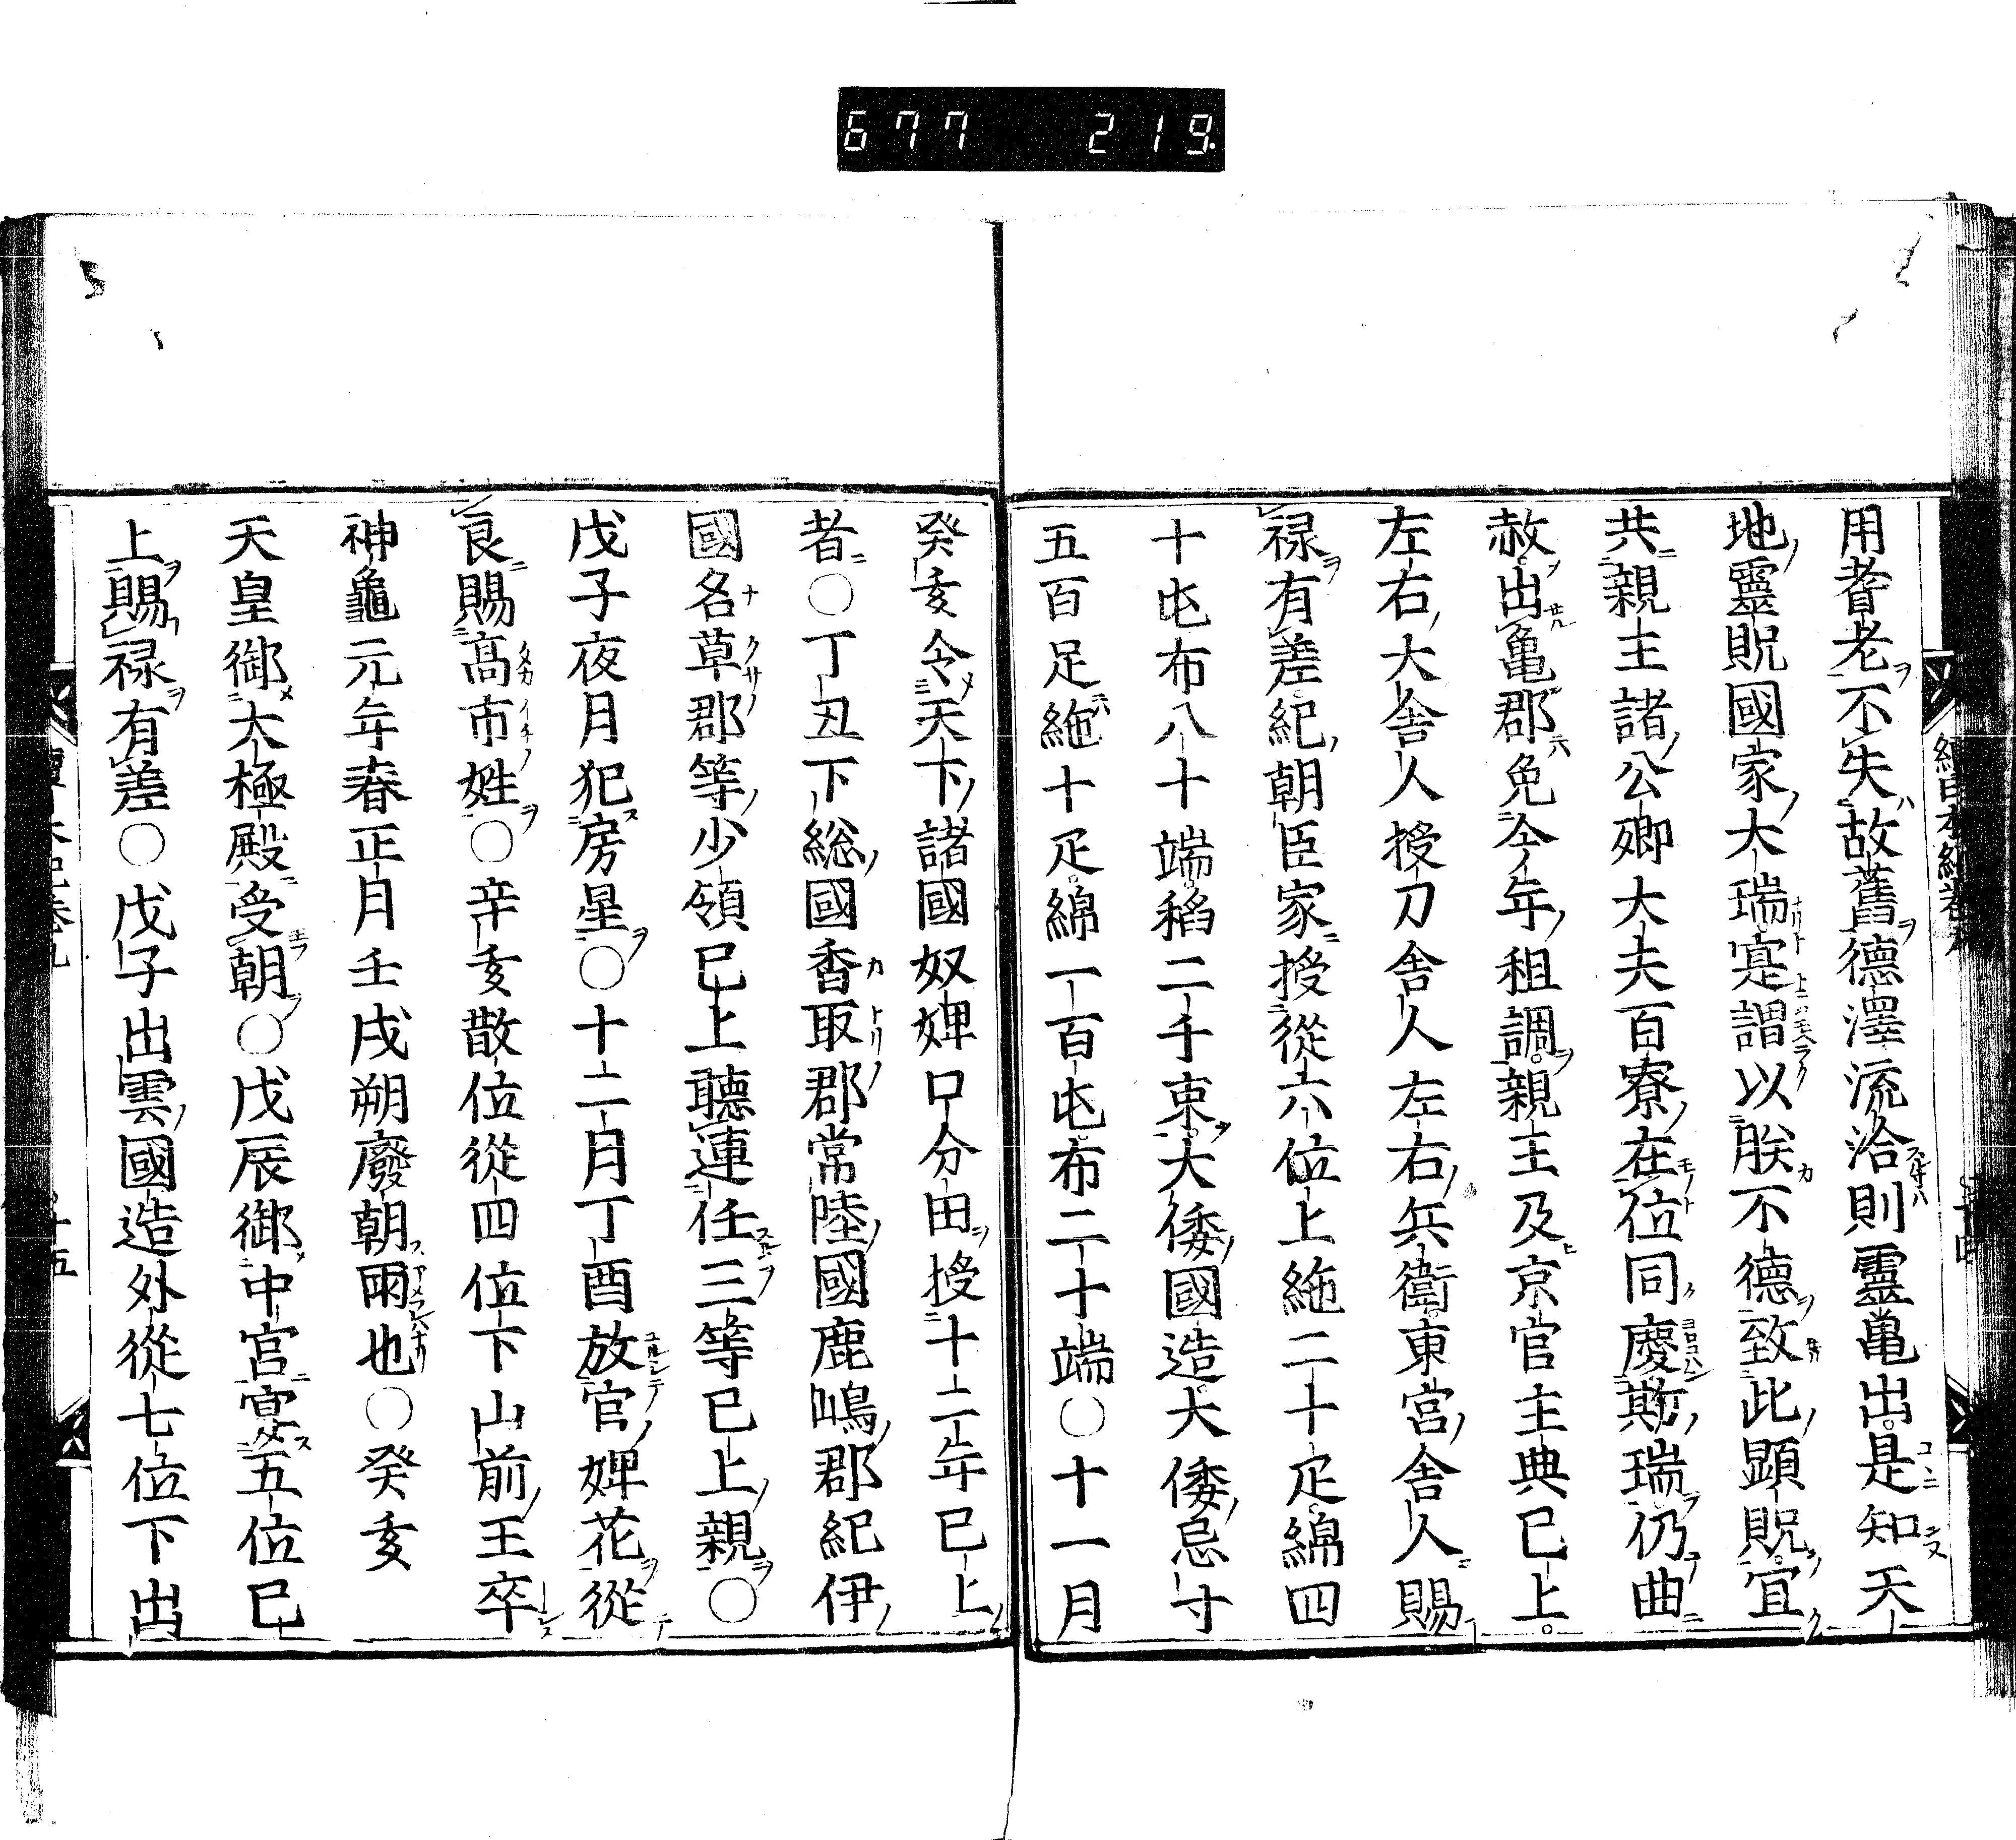 677 219
用耆老不失故舊德澤流洽則靈亀出是知天
地靈貺國家大瑞寔謂以朕不德致此顯貺宜
共親王諸公卿大夫百寮在位同慶斯瑞仍曲
赦出亀郡免今年租調親王及京官主典已上
左右大舎人授刀舎人左右兵衛東宮舎人賜
禄有差紀朝臣家授從六位上絁二十疋綿四
十屯布八十端稻二千束大倭國造大倭忌寸
五百足絁十疋綿一百屯布二十端〇十一月
癸亥令天下諸國奴婢口分田授十二年已上
者〇丁丑下総國香取郡常陸國鹿嶋郡紀伊
國名草郡等少領已上聽連任三等已上親〇
戊子夜月犯房星〇十二月丁酉放官婢花從
良賜髙市姓〇辛亥散位從四位下山前王卒
神龜元年春正月壬戌朔廢朝雨也〇癸亥
天皇御大極殿受朝〇戊辰御中宮宴五位已
上賜禄有差〇戊子出雲國造外從七位下出